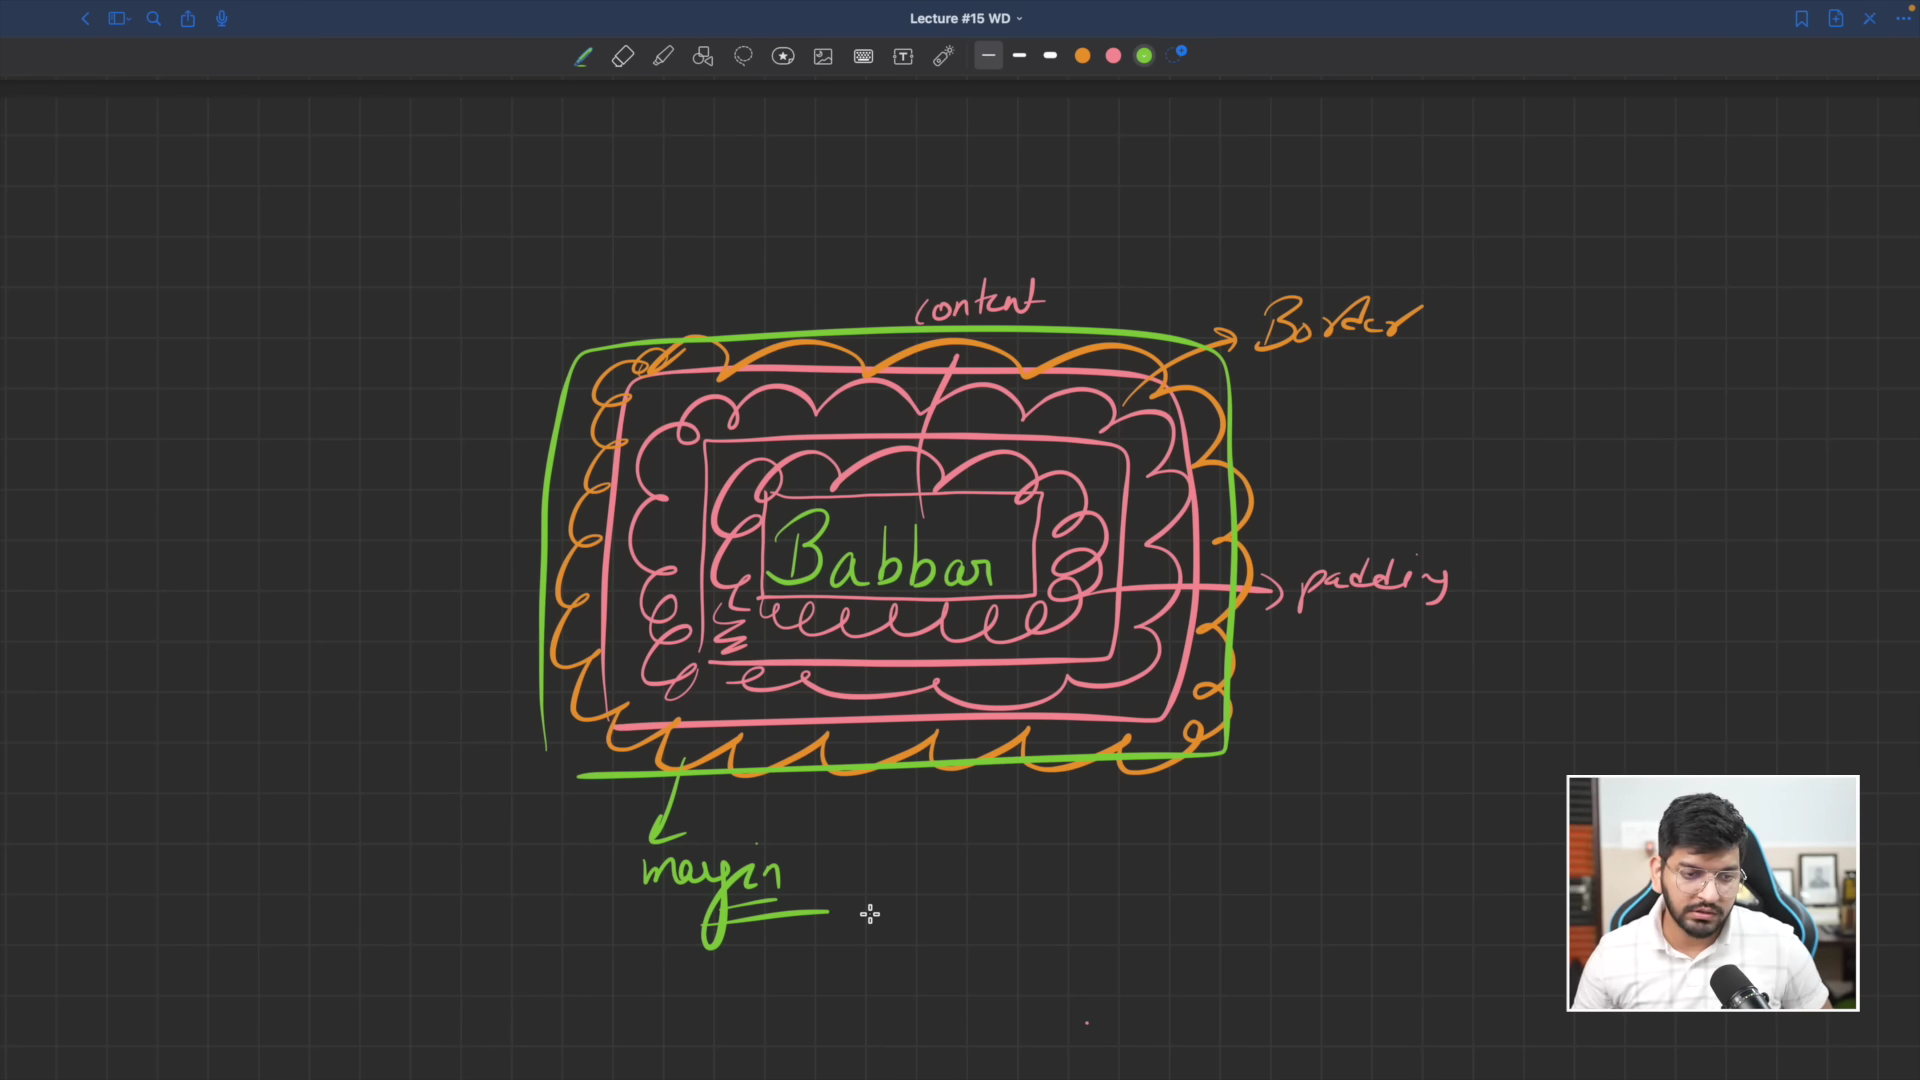 Lecture #15 WD
content
Border
Babbar
padding
margin